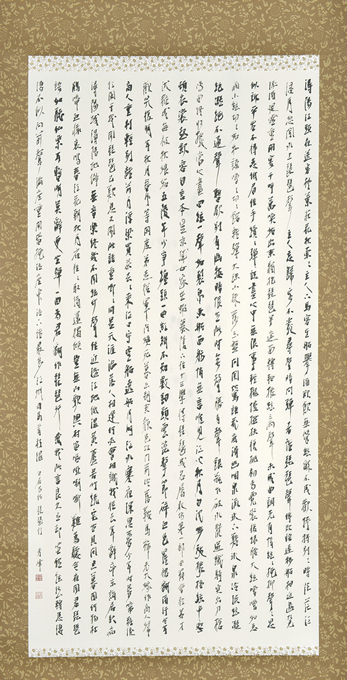 潯陽江頭夜送客楓葉荻花秋索索主人下馬客在船舉酒欲飲無管絃醉不成歡慘將別別時茫茫江
浸月忽聞水上琵琶聲主人忘歸客不發尋聲闇問彈者誰琵琶聲停欲語遲移船相近邀相見
添酒迴燈重開宴千呼萬喚始出來猶抱琵琶半遮面轉軸撥絃三兩聲未成曲調先有情絃絃掩抑聲聲思
似訴平生不得志低眉信手續續彈說盡心中無限事輕攏慢撚抹復挑初為霓裳後綠腰大絃嘈嘈如急
雨小絃切切如私語嘈嘈切切錯雜彈大珠小珠落玉盤間關鶯語花底滑幽咽泉流冰下難冰泉冷澀絃凝
絕凝絕不通聲暫歇別有幽愁闇恨生此時無聲勝有聲銀瓶乍破水漿迸鐵騎突出刀槍
鳴曲終收撥當心畫四絃一聲如裂帛東船西舫悄無言唯見江心秋月白沈吟放撥插絃中整
頓衣裳起斂容自言本是京城女家在蝦蟆陵下住十三學得琵琶成名屬教坊第一部曲罷曾教善才
伏妝成每被秋娘妒五陵年少爭纏頭一曲紅綃不知數鈿頭雲篦擊節碎血色羅裙翻酒污今年
歡笑復明年秋月春風等閑度弟走從軍阿姨死暮去朝來顏色故門前冷落鞍馬稀老大嫁作商人婦
商人重利輕別離前月浮梁買茶去去來江口守空船遶船月明江水寒夜深忽夢少年事夢啼妝淚
我聞琵琶已歎息又聞此語重唧唧同是天涯淪落人相逢何必曾相識我從去年辭帝京謫居臥病
潯陽城潯陽地僻無音樂終歲不聞絲竹聲住近湓江地低濕黃蘆苦竹繞宅生其間旦暮聞何物杜
鵑啼血猿哀鳴春江花朝秋月夜往往取酒還獨傾豈無山歌與村笛嘔啞嘲哳難為聽今夜聞君琵琶
語如聽仙樂耳暫明莫辭更坐彈一曲為君翻作琵琶行感我此言良久立卻坐促絃絃轉急淒
淒不似向前聲滿座重聞皆掩泣座中泣下誰最多江州司馬青衫濕